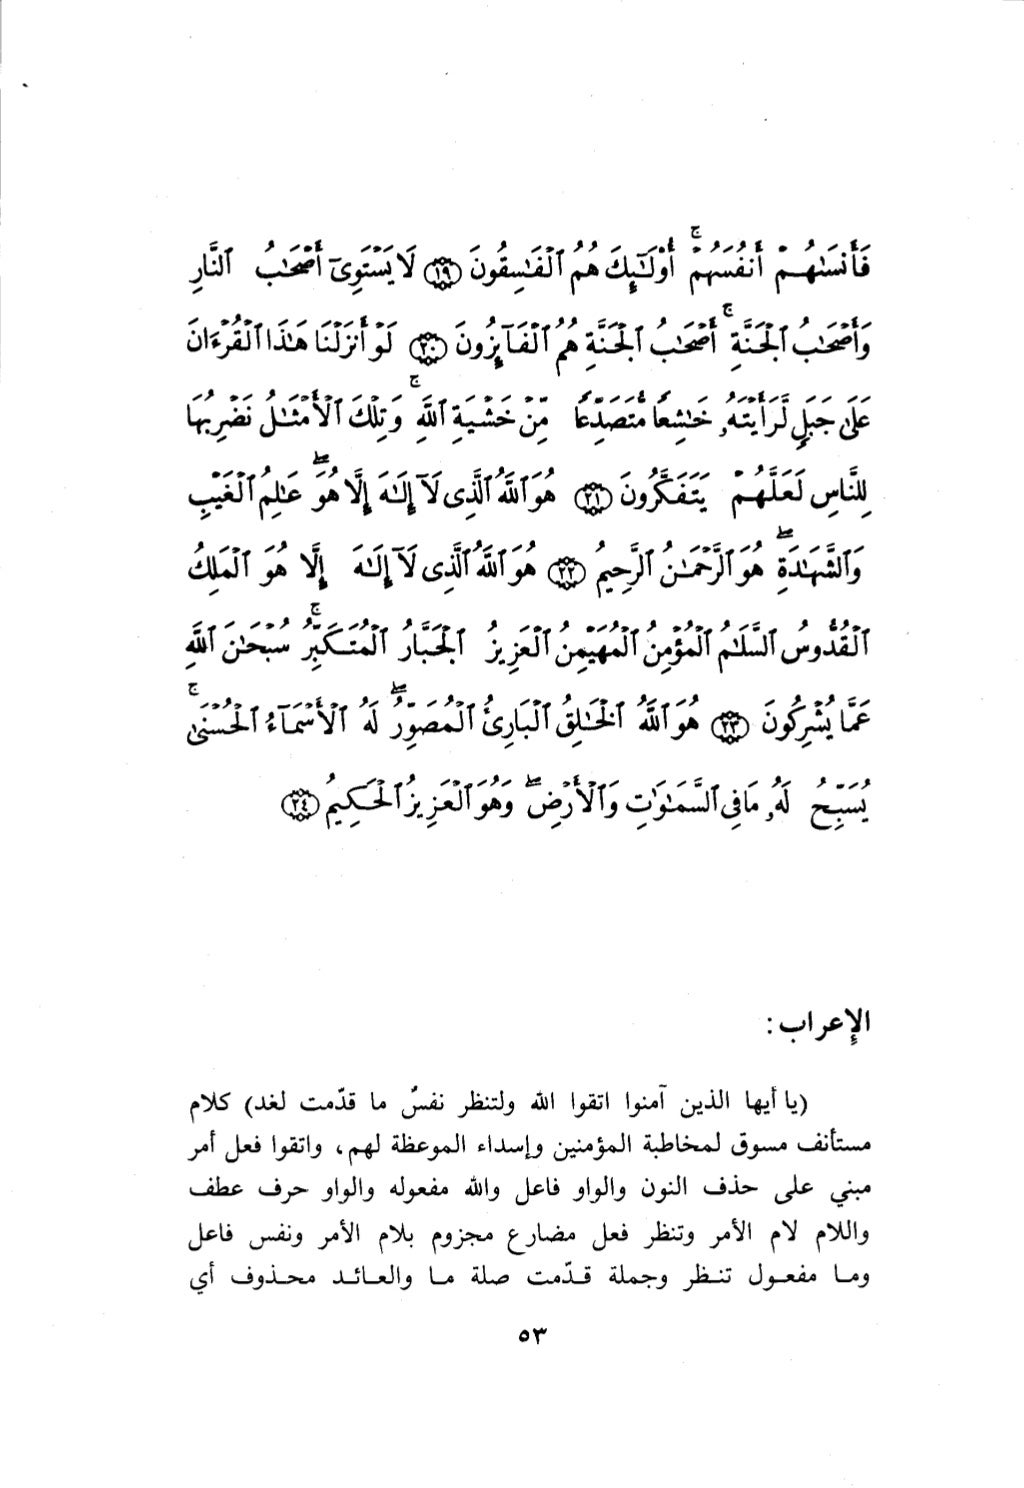 فَأَنسَىٰهُمْ أَنفُسَهُمْ ۚ أُوْلَـٰٓئِكَ هُمُ ٱلْفَـٰسِقُونَ ﴿١٩﴾ لَا يَسْتَوِىٓ أَصْحَـٰبُ ٱلنَّارِ
وَأَصْحَـٰبُ ٱلْجَنَّةِ ۚ أَصْحَـٰبُ ٱلْجَنَّةِ هُمُ ٱلْفَآئِزُونَ ﴿٢٠﴾ لَوْ أَنزَلْنَا هَـٰذَا ٱلْقُرْءَانَ
عَلَىٰ جَبَلٍ لَّرَأَيْتَهُۥ خَـٰشِعًا مُّتَصَدِّعًا مِّنْ خَشْيَةِ ٱللَّهِ ۚ وَتِلْكَ ٱلْأَمْثَـٰلُ نَضْرِبُهَا
لِلنَّاسِ لَعَلَّهُمْ يَتَفَكَّرُونَ ﴿٢١﴾ هُوَ ٱللَّهُ ٱلَّذِى لَآ إِلَـٰهَ إِلَّا هُوَ ۖ عَـٰلِمُ ٱلْغَيْبِ
وَٱلشَّهَـٰدَةِ ۖ هُوَ ٱلرَّحْمَـٰنُ ٱلرَّحِيمُ ﴿٢٢﴾ هُوَ ٱللَّهُ ٱلَّذِى لَآ إِلَـٰهَ إِلَّا هُوَ ٱلْمَلِكُ
ٱلْقُدُّوسُ ٱلسَّلَـٰمُ ٱلْمُؤْمِنُ ٱلْمُهَيْمِنُ ٱلْعَزِيزُ ٱلْجَبَّارُ ٱلْمُتَكَبِّرُ ۚ سُبْحَـٰنَ ٱللَّهِ
عَمَّا يُشْرِكُونَ ﴿٢٣﴾ هُوَ ٱللَّهُ ٱلْخَـٰلِقُ ٱلْبَارِئُ ٱلْمُصَوِّرُ ۖ لَهُ ٱلْأَسْمَآءُ ٱلْحُسْنَىٰ ۚ
يُسَبِّحُ لَهُۥ مَا فِى ٱلسَّمَـٰوَٰتِ وَٱلْأَرْضِ ۖ وَهُوَ ٱلْعَزِيزُ ٱلْحَكِيمُ ﴿٢٤﴾
الإعراب :
(يا أيها الذين آمنوا اتقوا الله ولتنظر نفسٌ ما قدّمت لغد) كلام
مستأنف مسوق لمخاطبة المؤمنين وإسداء الموعظة لهم، واتقوا فعل أمر
مبني على حذف النون والواو فاعل والله مفعوله والواو حرف عطف
واللام لام الأمر وتنظر فعل مضارع مجزوم بلام الأمر ونفس فاعل
وما مفعول تنظر وجملة قدّمت صلة ما والعائد محذوف أي
٥٣